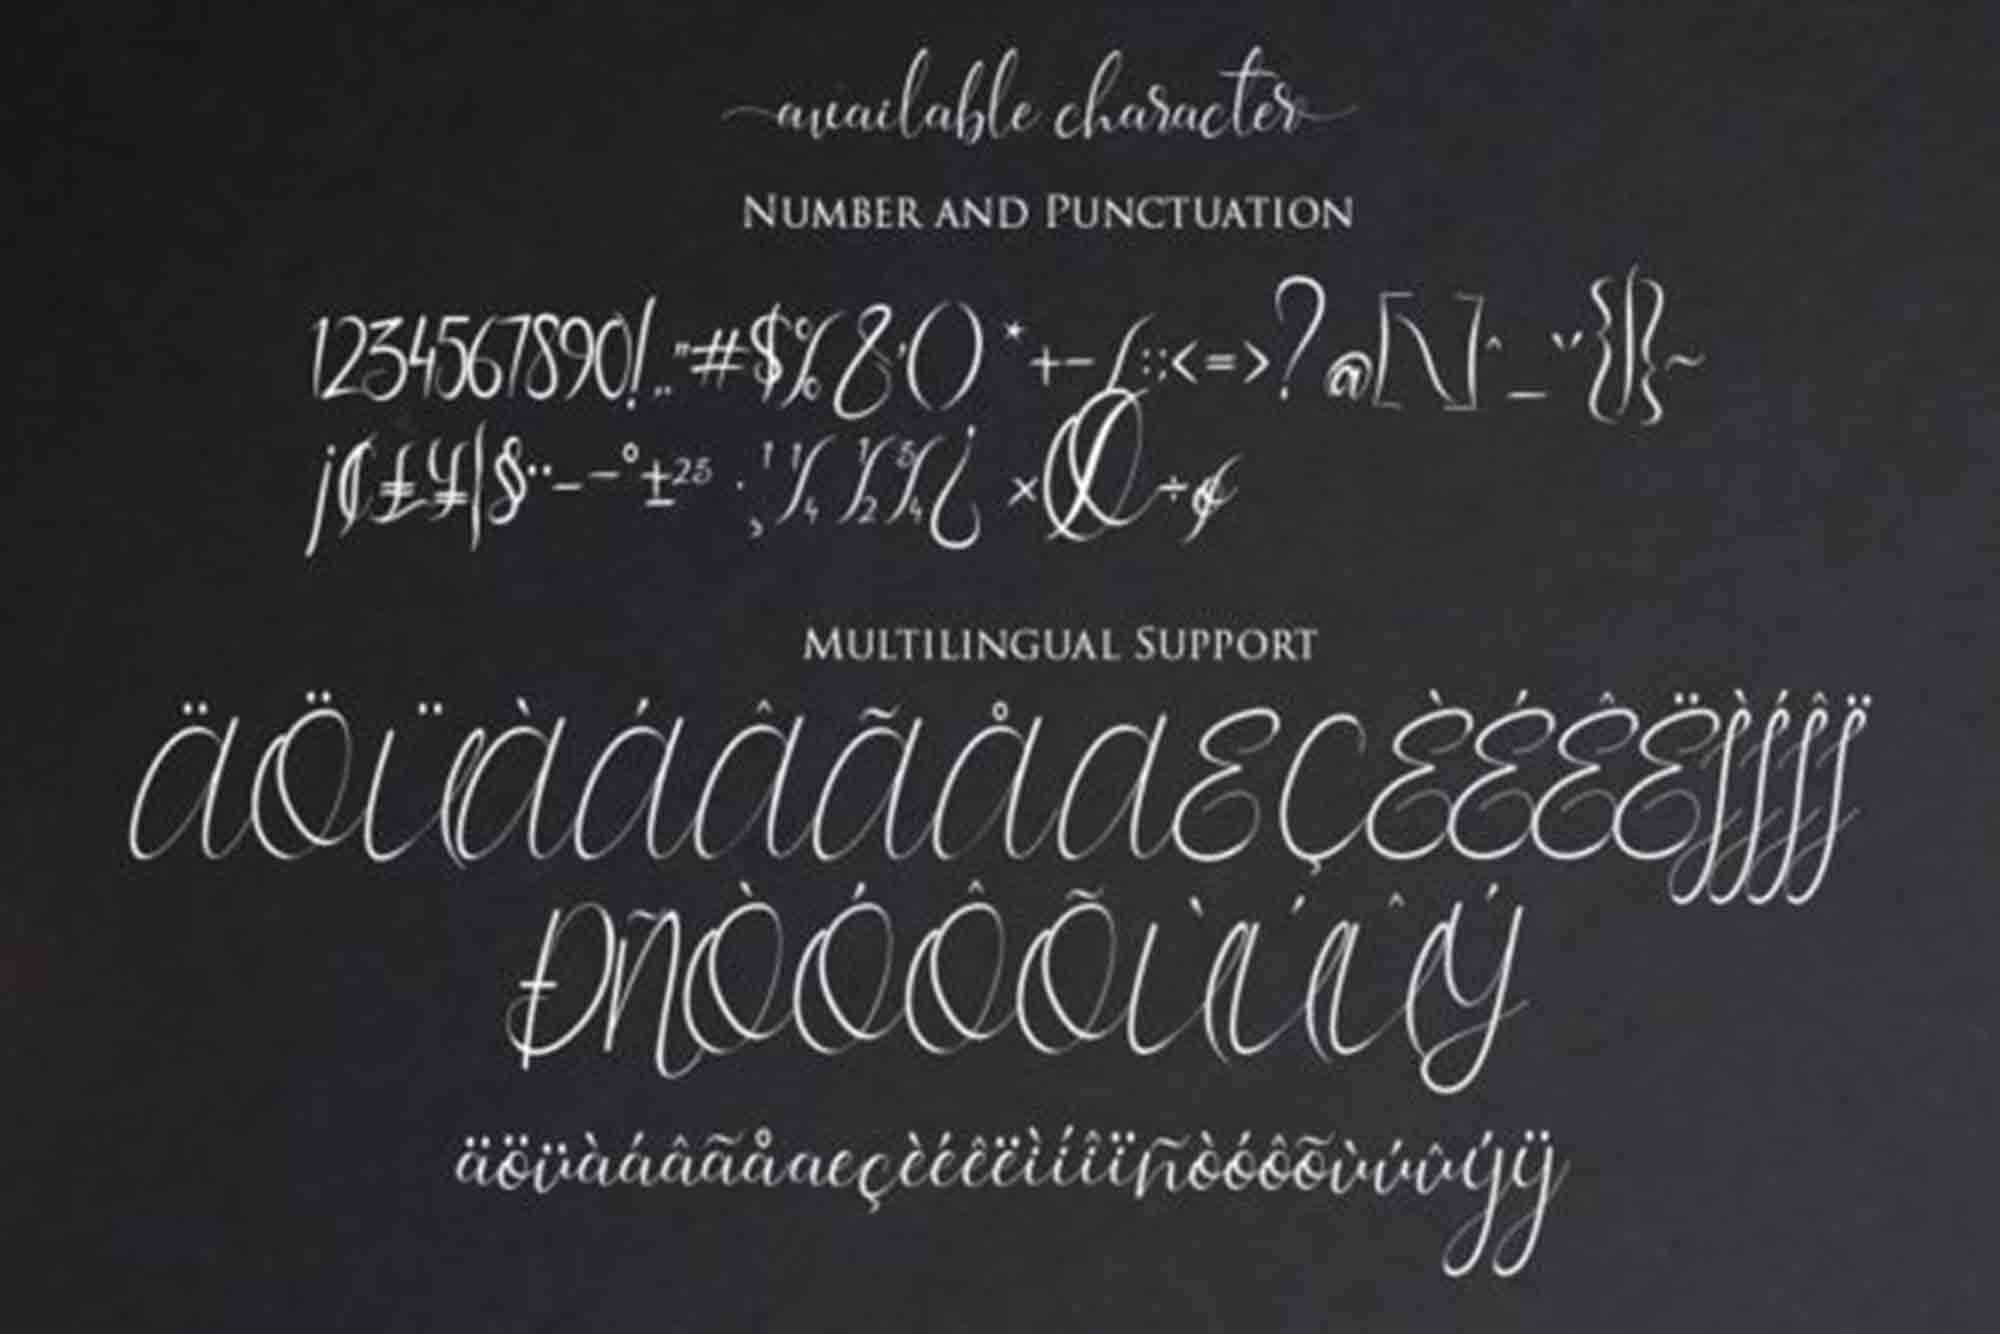 available character
NUMBER AND PUNCTUATION
1234567890!.,"#$%&'()*+-/:;<=>?@[\]^_`{|}~
¡¢£¥|§¨-¯°±²³·¸¹¼½¾¿×Ø÷ø
MULTILINGUAL SUPPORT
ÄÖÜÀÁÂÃÅÆÇÈÉÊËÌÍÎÏ
ÐÑÒÓÔÕÙÚÛÝ
äöüàáâãåæçèéêëìíîïñòóôõùúûýÿ